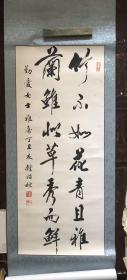 竹不如花青且雅
蘭雖似草秀而鮮
勤爱女士雅意丁丑